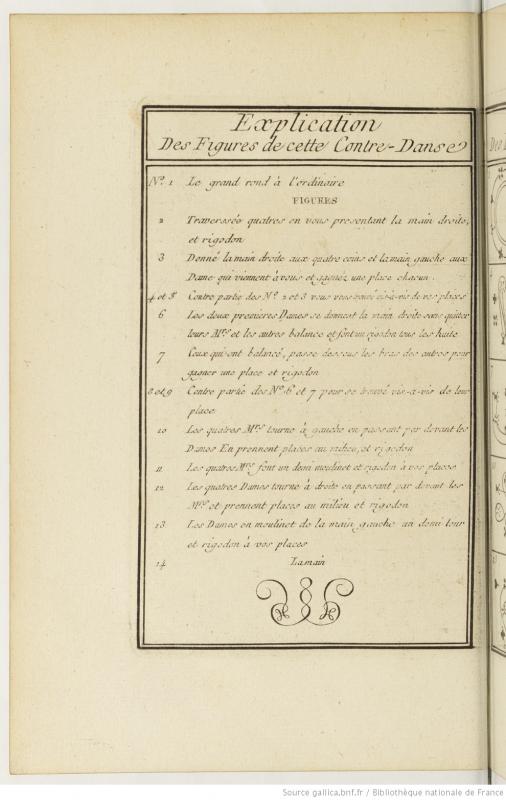 Explication
Des Figures de cette Contre-Danse
No. 1 Le grand rond à l'ordinaire
FIGURES
2 Traverssée quatres en vous presentant la main droite,
et rigodon
3 Donné la main droite aux quatre coins et la main gauche aux
Dame qui viennent à vous et gagnez une place chacun.
4 et 5 Contre partie des No. 2 et 3 vis-à-vis de vos places
6 Les deux premieres Dames se donnent la main droite sans quitter
leurs Mrs et les autres balance et font un rigodon tous les huite
7 Ceux qui ont balancé, passe dessous les bras des autres pour
gagner une place et rigodon
8 et 9 Contre partie des No. 6 et 7 pour se trouvé vis-à-vis de leur
place
10 Les quatres Mrs tourne à gauche en passant par devant les
Dames En prennent places au milieu, et rigodon
11 Les quatres Mrs font un demi moulinet et rigodon à vos places
12 Les quatres Dames tourne à droite en passant par devant les
Mrs et prennent places au milieu et rigodon
13 Les Dames en moulinet de la main gauche un demi tour
et rigodon à vos places
14 La main
Source gallica.bnf.fr / Bibliothèque nationale de France